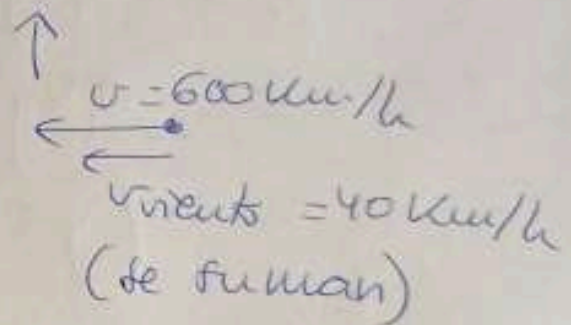 v = 600 Km/h
Vviento = 40 Km/h
(se suman)